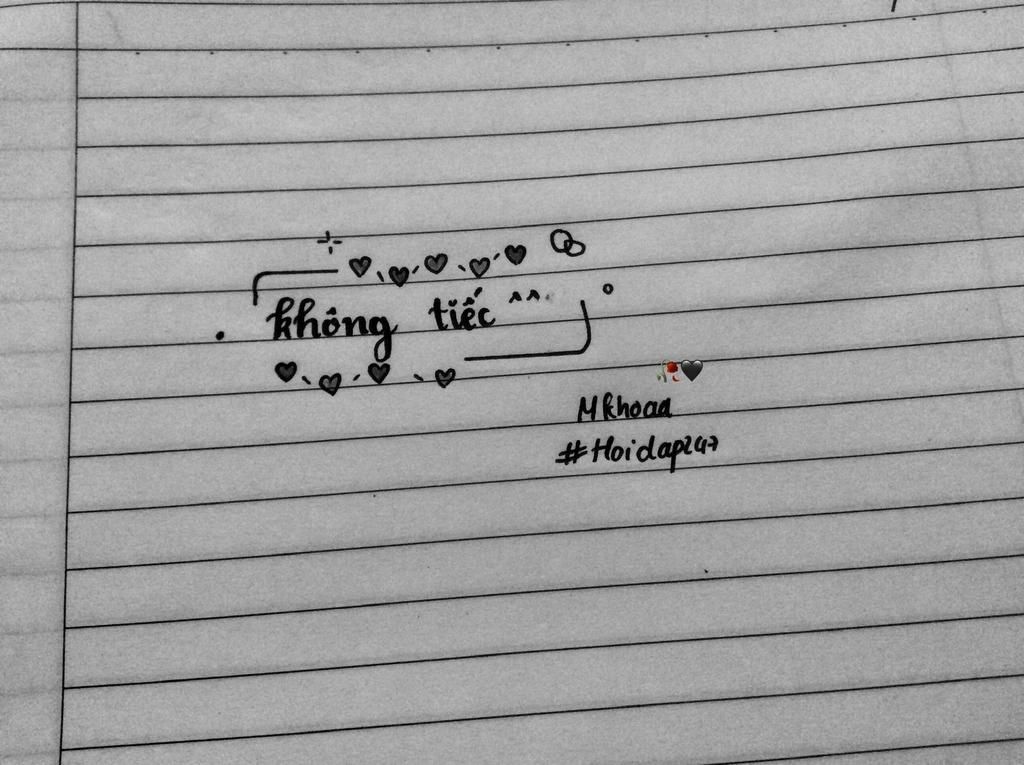 không tiếc ^^.
Mkhoaa
#Hoidap247